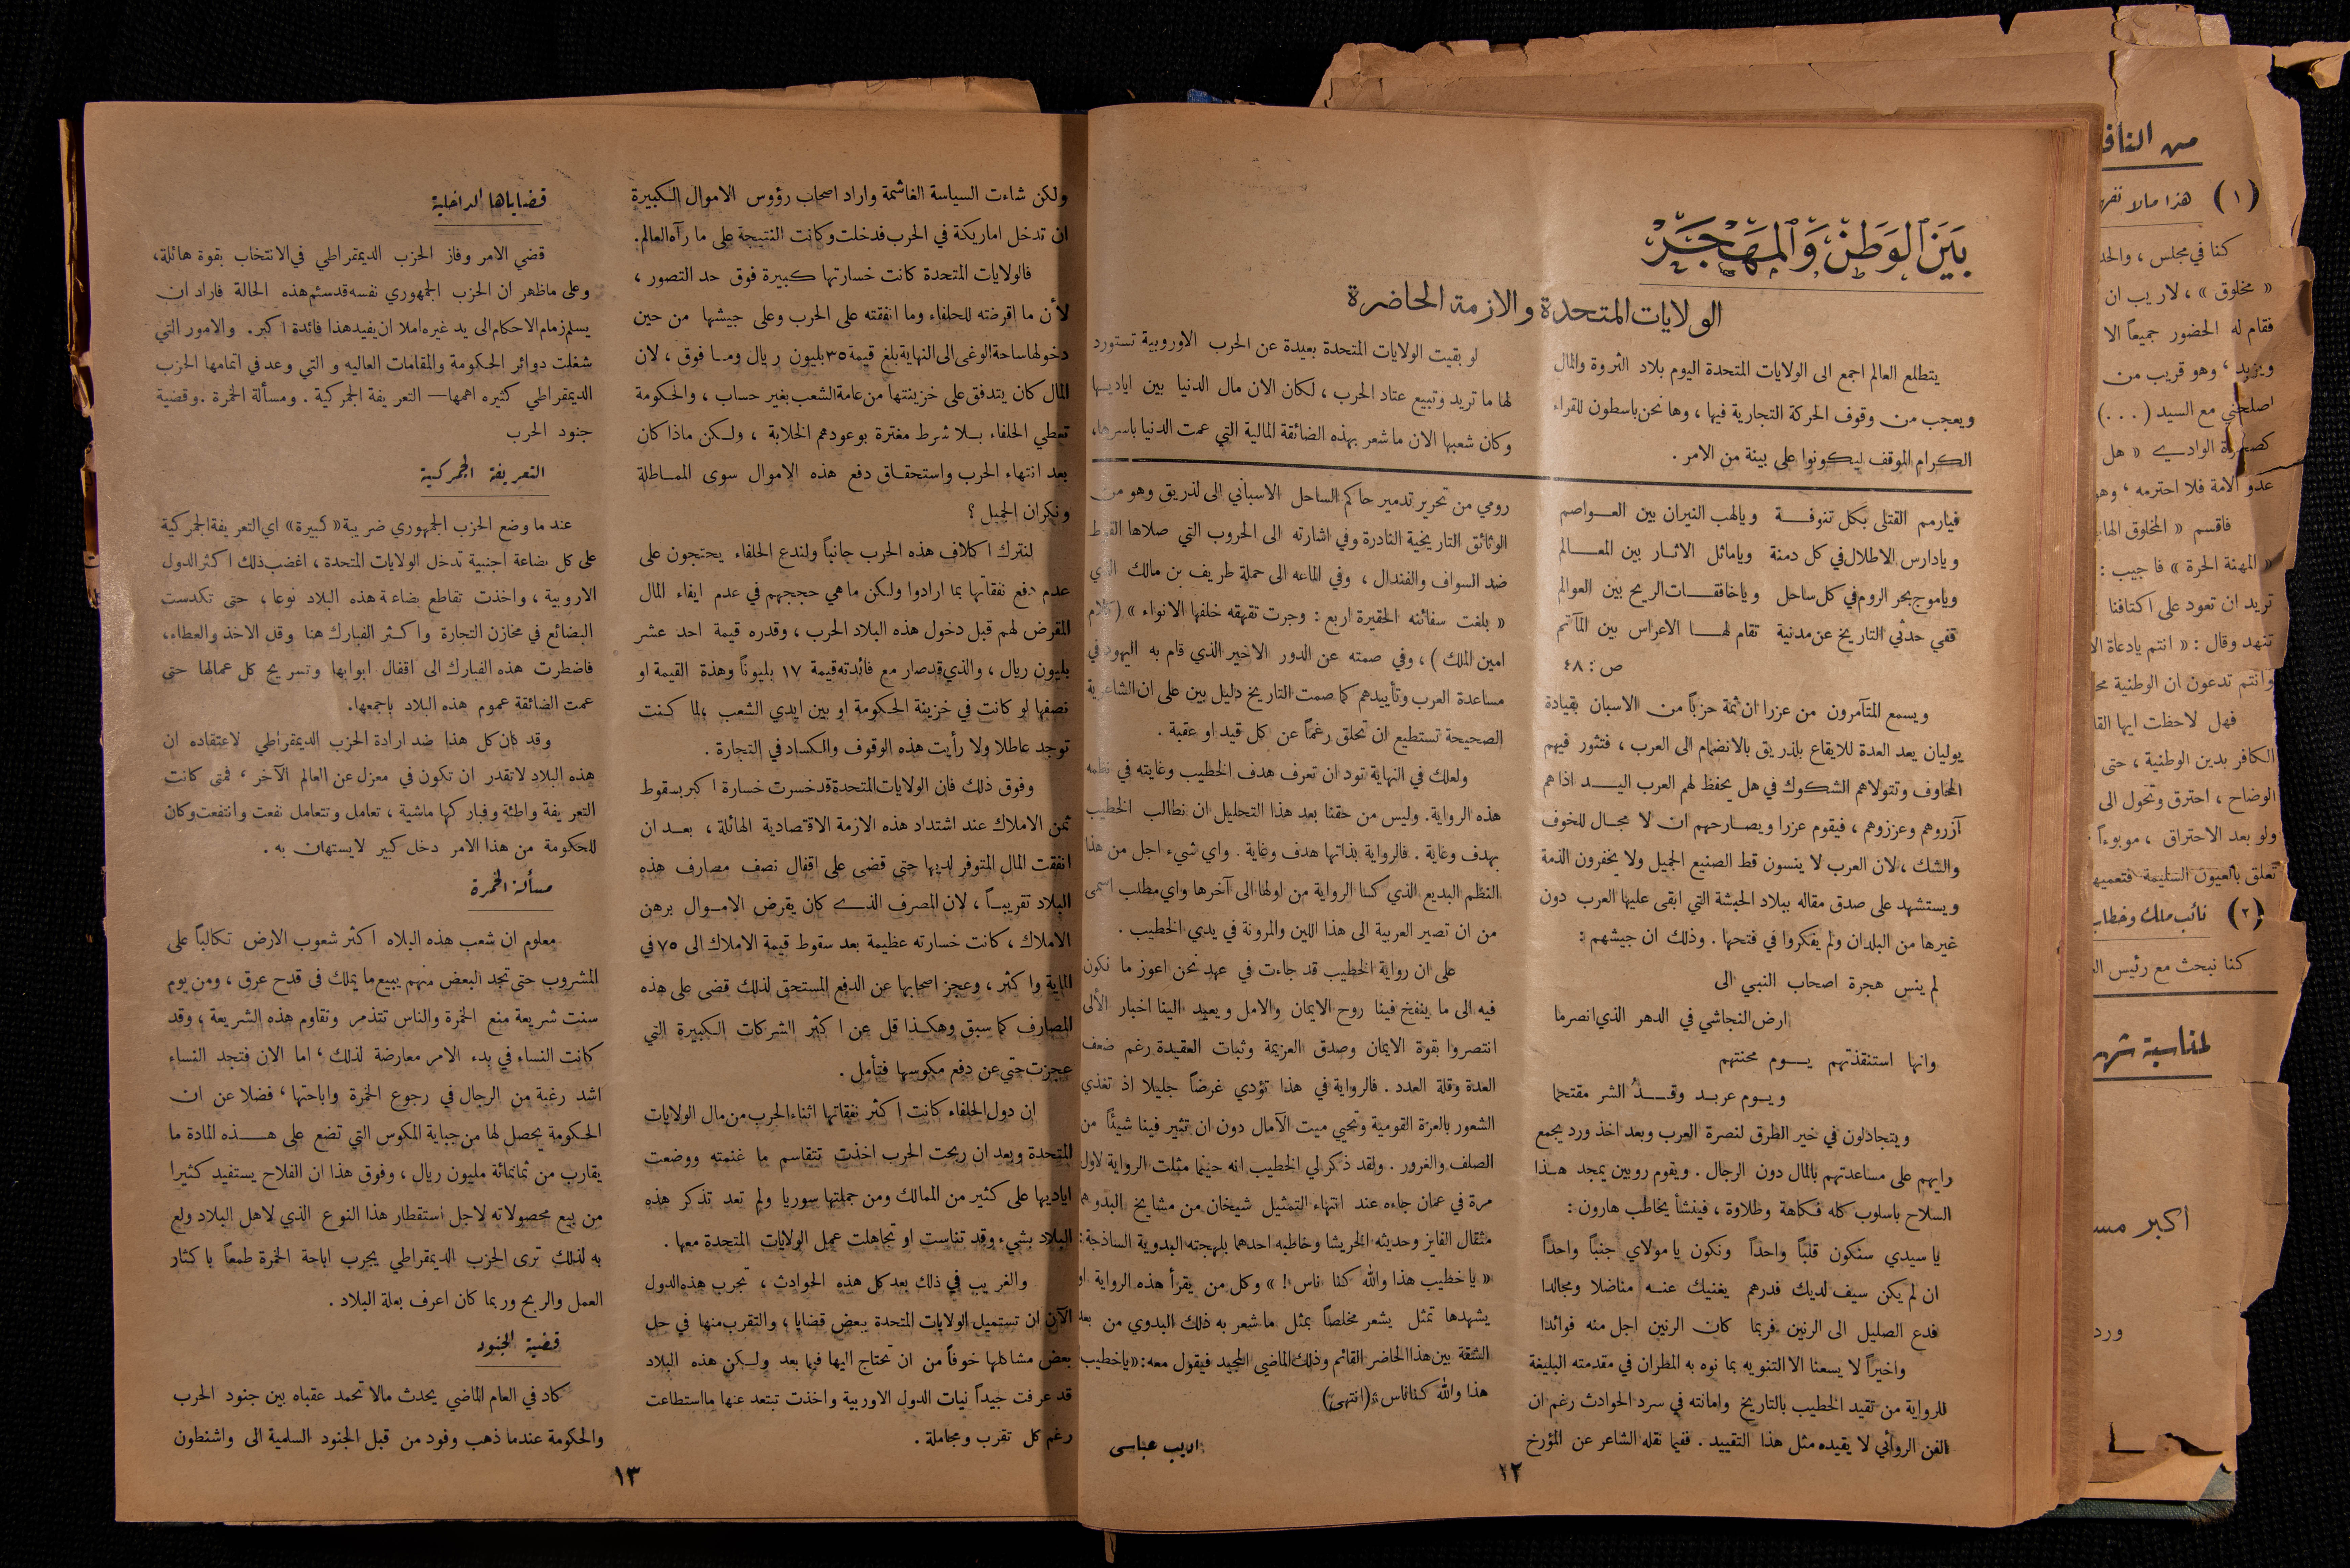 بَيْنَ الوَطَنْ وَالمَهْجَرْ
الولايات المتحدة والازمة الحاضرة
يتطلع العالم اجمع الى الولايات المتحدة اليوم بلاد الثروة والمال
ويعجب من وقوف الحركة التجارية فيها ، وها نحن باسطون للقراء
الكرام الموقف ليكونوا على بينة من الامر .
لو بقيت الولايات المتحدة بعيدة عن الحرب الاوروبية تستورد
لها ما تريد وتبيع عتاد الحرب ، لكان الان مال الدنيا بين اياديها
وكان شعبها الان ما شعر بهذه الضائقة المالية التي عمت الدنيا باسرها،
فيارمم القتلى بكل تنوفة ويالهب النيران بين العواصم
ويادارس الاطلال في كل دمنة وياماثل الاثار بين المعالم
وياموج بحر الروم في كل ساحل وياخافقات الريح بين العوالم
قفي حدثي التاريخ عن مدنية تقام لها الاعراس بين المآتم
ص : ٤٨
ويسمع المتآمرون من عزرا ان ثمة حزباً من الاسبان بقيادة
يوليان يعد العدة للايقاع بلذريق بالانضمام الى العرب ، فتثور فيهم
المخاوف وتتولاهم الشكوك في هل يحفظ لهم العرب اليد اذا هم
آزروهم وعززوهم ، فيقوم عزرا ويصارحهم ان لا مجال للخوف
والشك ، لان العرب لا ينسون قط الصنيع الجميل ولا يخفرون الذمة
ويستشهد على صدق مقاله ببلاد الحبشة التي ابقى عليها العرب دون
غيرها من البلدان ولم يفكروا في فتحها . وذلك ان جيشهم :
لم ينس هجرة اصحاب النبي الى
ارض النجاشي في الدهر الذي انصرما
وانها استنقذتهم يوم محنتهم
ويوم عربد وقدُّ الشر مقتحما
ويتجادلون في خير الطرق لنصرة العرب وبعد اخذ ورد يجمع
رايهم على مساعدتهم بالمال دون الرجال . ويقوم روبين يمجد هذا
السلاح باسلوب كله فكاهة وطلاوة ، فينشأ يخاطب هارون :
يا سيدي سنكون قلباً واحداً ونكون يا مولاي جنباً واحداً
ان لم يكن سيف لديك فدرهم يغنيك عنه مناضلا ومجالدا
فدع الصليل الى الرنين فربما كان الرنين اجل منه فوائدا
واخيراً لا يسعنا الا التنويه بما نوه به المطران في مقدمته البليغة
للرواية من تقيد الخطيب بالتاريخ وامانته في سرد الحوادث رغم ان
الفن الروائي لا يقيده مثل هذا التقييد . ففيما نقله الشاعر عن المؤرخ
رومي من تحرير تدمير حاكم الساحل الاسباني الى لذريق وهو من
الوثائق التاريخية النادرة وفي اشارته الى الحروب التي صلاها القوط
ضد السواف والفندال ، وفي الماعه الى حملة طريف بن مالك الذي
« بلغت سفائنه الحقيرة اربع : وجرت تقهقه خلفها الانواء » (كلام
امين الملك) ، وفي صمته عن الدور الاخير الذي قام به اليهود في
مساعدة العرب وتأييدهم كما صمت التاريخ دليل بين على ان الشاعرية
الصحيحة تستطيع ان تحلق رغماً عن كل قيد او عقبة .
ولعلك في النهاية تود ان تعرف هدف الخطيب وغايته في نظمه
هذه الرواية. وليس من حقنا بعد هذا التحليل ان نطالب الخطيب
بهدف وغاية . فالرواية بذاتها هدف وغاية . واي شيء اجل من هذا
النظم البديع الذي كسا الرواية من اولها الى آخرها واي مطلب اسمى
من ان تصير العربية الى هذا اللين والمرونة في يدي الخطيب .
على ان رواية الخطيب قد جاءت في عهد نحن اعوز ما نكون
فيه الى ما ينفخ فينا روح الايمان والامل ويعيد الينا اخبار الألى
انتصروا بقوة الايمان وصدق العزيمة وثبات العقيدة رغم ضعف
العدة وقلة العدد . فالرواية في هذا تؤدي غرضاً جليلا اذ تغذي
الشعور بالعزة القومية وتحيي ميت الآمال دون ان تثير فينا شيئاً من
الصلف والغرور . ولقد ذكر لي الخطيب انه حينما مثلت الرواية لاول
مرة في عمان جاءه عند انتهاء التمثيل شيخان من مشايخ البدو هما
مثقال الفايز وحديثه الخريشا وخاطبه احدهما بلهجته البدوية الساذجة:
« يا خطيب هذا والله كنا ناس ! » وكل من يقرأ هذه الرواية او
يشهدها تمثل يشعر مخلصاً بمثل ما شعر به ذلك البدوي من بعد
الشقة بين هذا الحاضر القائم وذلك الماضي المجيد فيقول معه: «يا خطيب
هذا والله كنا ناس» (انتهى)
اديب عباسى
١٢
ولكن شاءت السياسة الغاشمة واراد اصحاب رؤوس الاموال الكبيرة
ان تدخل اماريكة في الحرب فدخلت وكانت النتيجة على ما رآه العالم.
فالولايات المتحدة كانت خسارتها كبيرة فوق حد التصور ،
لأن ما اقرضته للحلفاء وما انفقته على الحرب وعلى جيشها من حين
دخولها ساحة الوغى الى النهاية بلغ قيمة ٣٥ بليون ريال وما فوق ، لان
المال كان يتدفق على خزينتها من عامة الشعب بغير حساب ، والحكومة
تعطي الحلفاء بلا شرط مغترة بوعودهم الخلابة ، ولكن ماذا كان
بعد انتهاء الحرب واستحقاق دفع هذه الاموال سوى المماطلة
ونكران الجميل ؟
لنترك اكلاف هذه الحرب جانباً ولندع الحلفاء يحتجون على
عدم دفع نفقاتها بما ارادوا ولكن ما هي حججهم في عدم ايفاء المال
المقرض لهم قبل دخول هذه البلاد الحرب ، وقدره قيمة احد عشر
بليون ريال ، والذي قد صار مع فائدته قيمة ١٧ بليوناً وهذة القيمة او
نصفها لو كانت في خزينة الحكومة او بين ايدي الشعب ، لما كنت
توجد عاطلا ولا رأيت هذه الوقوف والكساد في التجارة .
وفوق ذلك فان الولايات المتحدة قد خسرت خسارة اكبر بسقوط
ثمن الاملاك عند اشتداد هذه الازمة الاقتصادية الهائلة ، بعد ان
انفقت المال المتوفر لديها حتى قضى على اقفال نصف مصارف هذه
البلاد تقريباً ، لان المصرف الذي كان يقرض الاموال برهن
الاملاك ، كانت خسارته عظيمة بعد سقوط قيمة الاملاك الى ٧٥ في
الماية واكثر ، وعجز اصحابها عن الدفع المستحق لذلك قضى على هذه
المصارف كما سبق وهكذا قل عن اكثر الشركات الكبيرة التي
عجزت حتى عن دفع مكوسها فتأمل .
ان دول الحلفاء كانت اكثر نفقاتها اثناء الحرب من مال الولايات
المتحدة وبعد ان ربحت الحرب اخذت تتقاسم ما غنمته ووضعت
اياديها على كثير من الممالك ومن جملتها سوريا ولم تعد تذكر هذه
البلاد بشيء وقد تناست او تجاهلت عمل الولايات المتحدة معها .
والغريب في ذلك بعد كل هذه الحوادث ، تجرب هذه الدول
الآن ان تستميل الولايات المتحدة ببعض قضايا ، والتقرب منها في حل
بعض مشاكلها خوفاً من ان تحتاج اليها فيما بعد ولكن هذه البلاد
قد عرفت جيداً نيات الدول الاوربية واخذت تبتعد عنها ما استطاعت
رغم كل تقرب ومجاملة .
قضاياها الداخلية
قضي الامر وفاز الحزب الديمقراطي في الانتخاب بقوة هائلة،
وعلى ماظهر ان الحزب الجمهوري نفسه قد سئم هذه الحالة فاراد ان
يسلم زمام الاحكام الى يد غيره املا ان يفيد هذا فائدة اكبر. والامور التي
شغلت دوائر الحكومة والمقامات العاليه والتي وعد في اتمامها الحزب
الديمقراطي كثيره اهمها — التعريفة الجمركية . ومسألة الخمرة . وقضية
جنود الحرب
التعريفة الجمركية
عند ما وضع الحزب الجمهوري ضريبة «كبيرة» اي التعريفة الجمركية
على كل بضاعة اجنبية تدخل الولايات المتحدة ، اغضب ذلك اكثر الدول
الاروبية ، واخذت تقاطع بضاعة هذه البلاد نوعا ، حتى تكدست
البضائع في مخازن التجارة واكثر الفبارك هنا وقل الاخذ والعطاء،
فاضطرت هذه الفبارك الى اقفال ابوابها وتسريح كل عمالها حتى
عمت الضائقة عموم هذه البلاد باجمعها.
وقد كان كل هذا ضد ارادة الحزب الديمقراطي لاعتقاده ان
هذه البلاد لاتقدر ان تكون في معزل عن العالم الآخر ، فمتى كانت
التعريفة واطئة وفباركها ماشية ، تعامل وتتعامل نفعت وانتفعت وكان
للحكومة من هذا الامر دخل كبير لايستهان به .
مسألة الخمرة
معلوم ان شعب هذه البلاه اكثر شعوب الارض تكالباً على
المشروب حتى تجد البعض منهم يبيع ما يملك في قدح عرق ، ومن يوم
سنت شريعة منع الخمرة والناس تتذمر وتقاوم هذه الشريعة ، وقد
كانت النساء في بدء الامر معارضة لذلك ، اما الان فتجد النساء
اشد رغبة من الرجال في رجوع الخمرة واباحتها ، فضلا عن ان
الحكومة يحصل لها من جباية المكوس التي تضع على هذه المادة ما
يقارب من ثمانمائة مليون ريال ، وفوق هذا ان الفلاح يستفيد كثيرا
من بيع محصولاته لاجل استقطار هذا النوع الذي لاهل البلاد ولع
به لذلك ترى الحزب الديمقراطي يجرب اباحة الخمرة طمعاً باكثار
العمل والربح وربما كان اعرف بعلة البلاد .
قضية الجنود
كاد في العام الماضي يحدث مالا تحمد عقباه بين جنود الحرب
والحكومة عندما ذهب وفود من قبل الجنود السلمية الى واشنطون
١٣
من
(١) هذا مالا
كنا في مجلس ،
« مخلوق » ، لاريب ان
فقام له الحضور جميعاً الا
ويزيد ، وهو قريب من
اصلحني مع السيد (...)
الوادي « هل
عدو الامة فلا احترمه ،
فاقسم « المخلوق
« المهنة الحرة » فاجيب :
تريد ان تعود على اكتافنا
تنهد وقال : « انتم يادعاة
وانتم تدعون ان الوطنية
فهل لاحظت ايها
الكافر بدين الوطنية ، حتى
الوضاح ، احترق وتحول الى
ولو بعد الاحتراق ، موبوءاً
تعلق بالعيون السليمة
(٢) نائب ملك
كنا نبحث مع رئيس
لمناسبة
اكبر